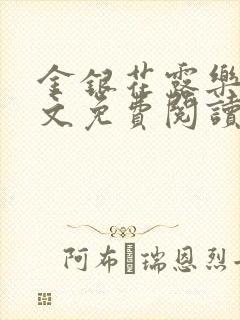 金銀花露樂
文免費閱讀
阿布 瑞恩烈